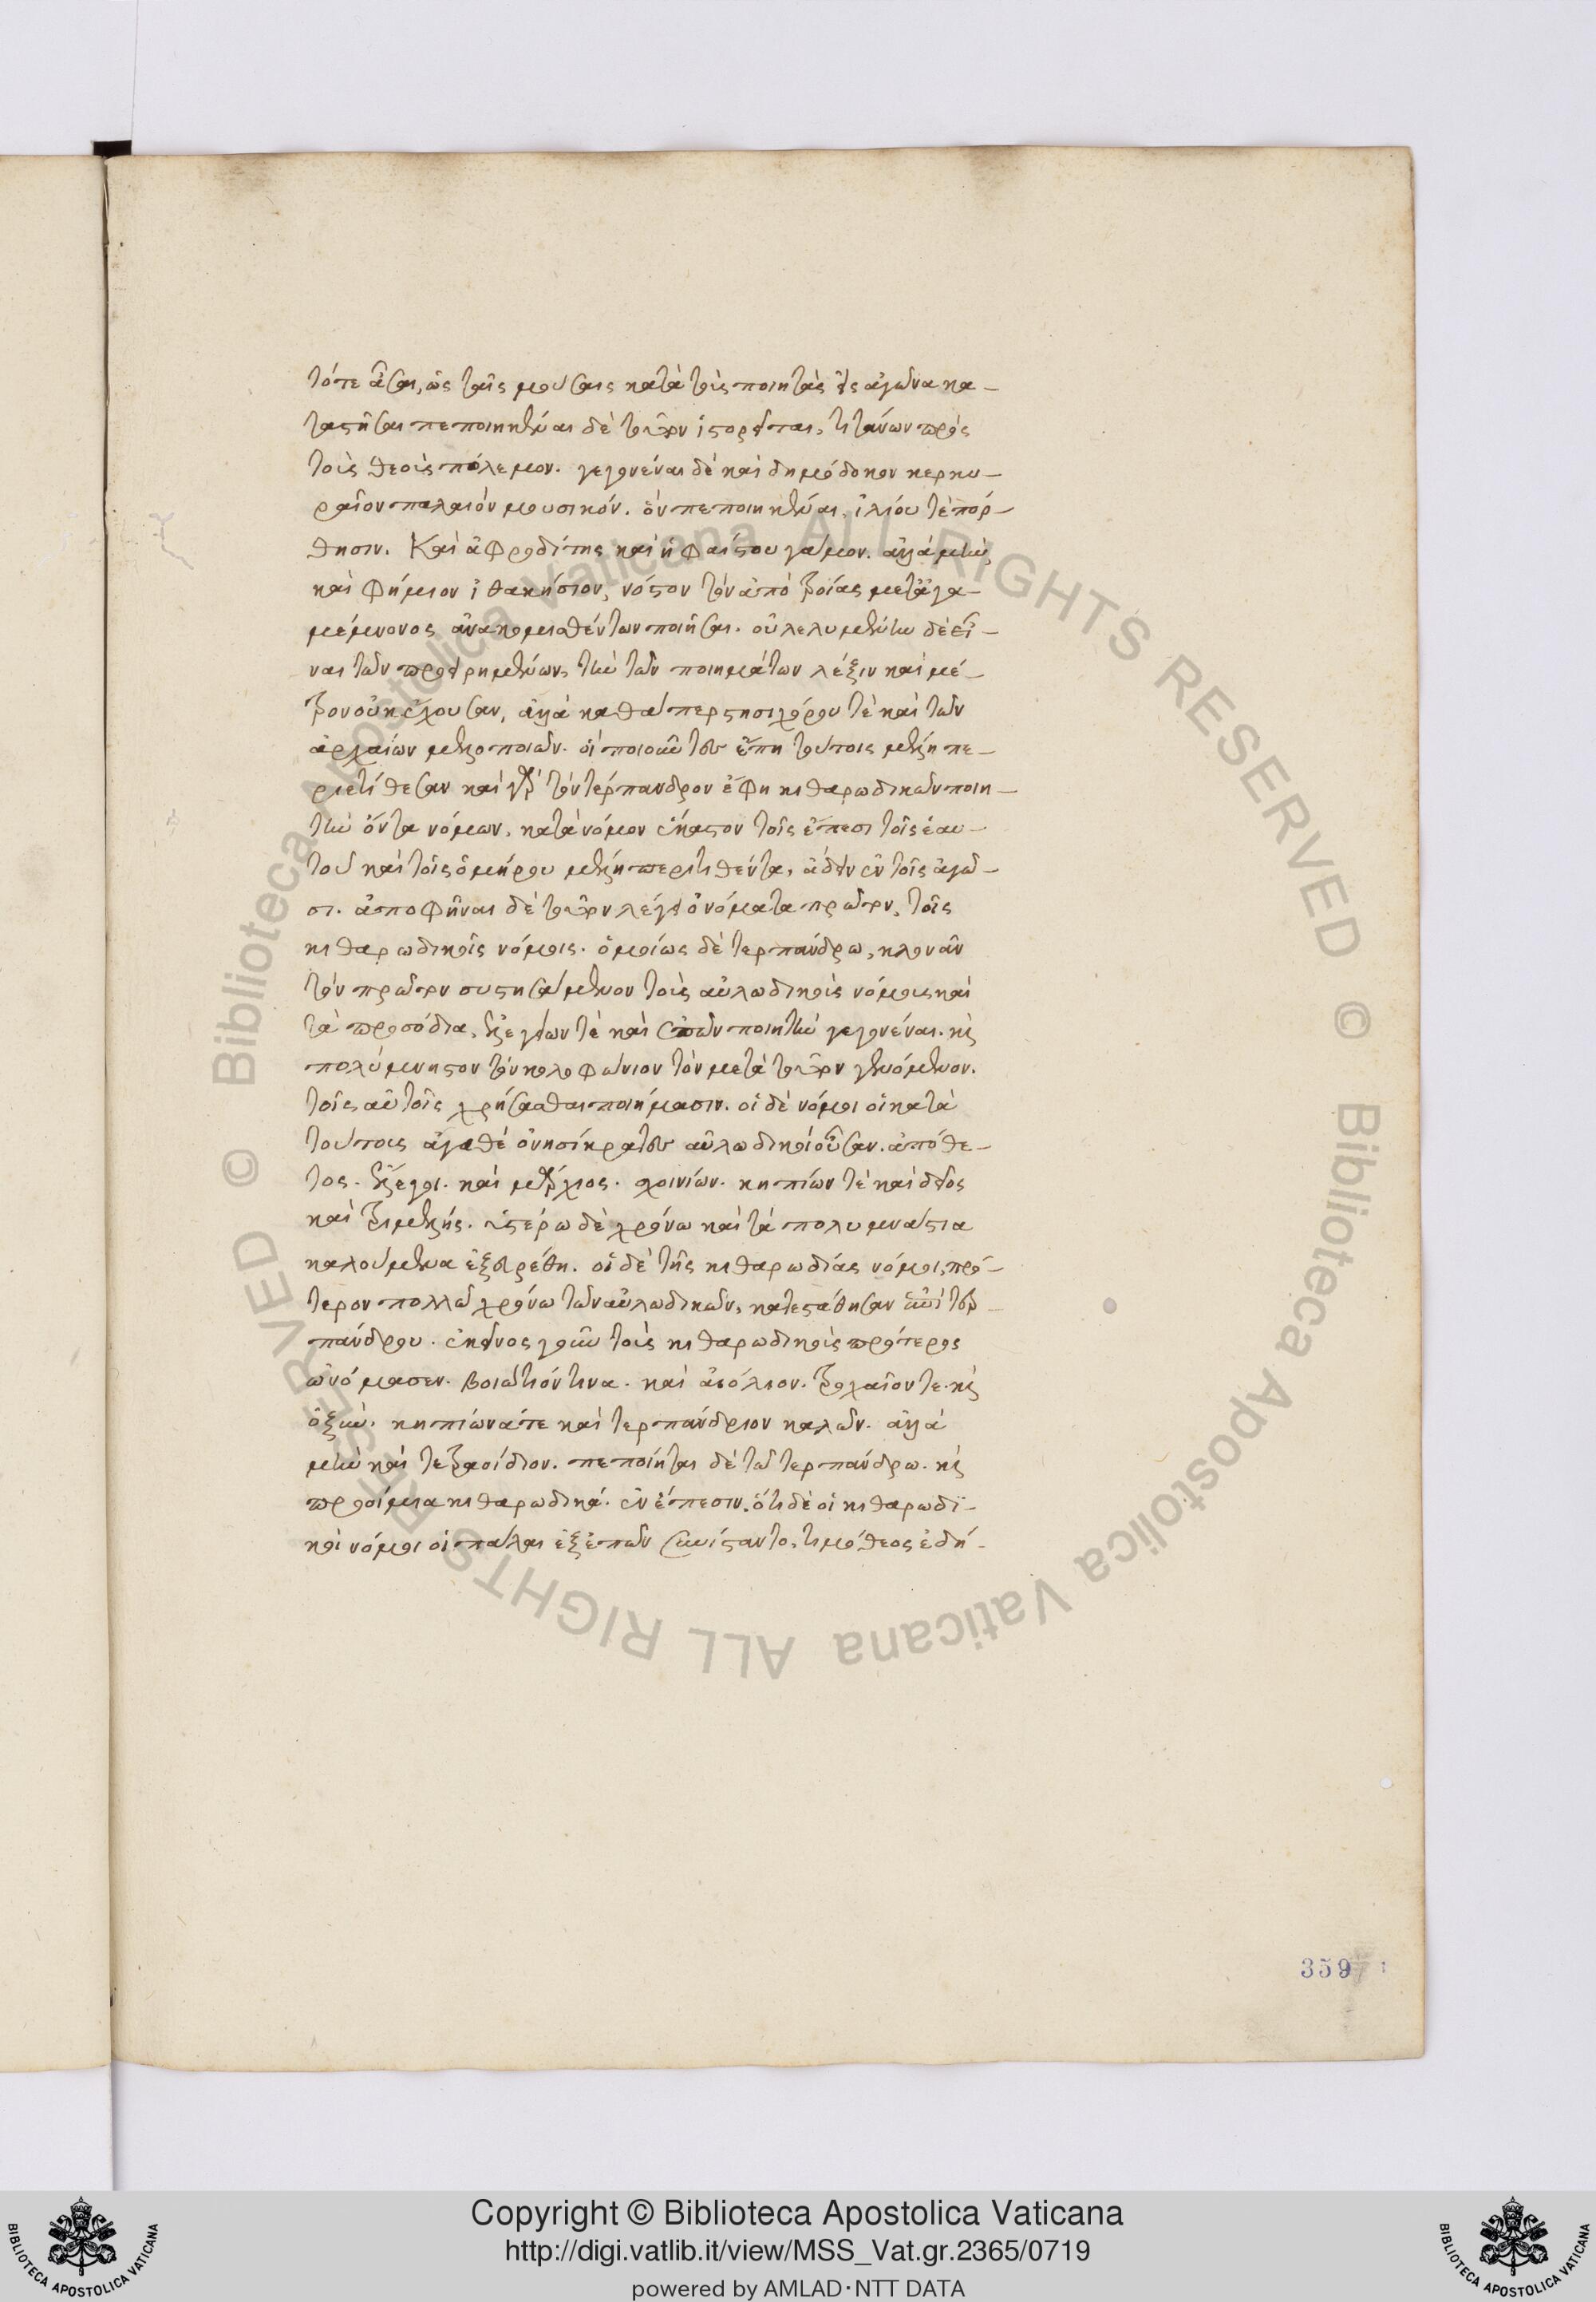 τότε ἆσαι, ὡς ταῖς μούσαις κατὰ τοὺς ποιητὰς εἰς ἀγῶνα κα-
ταστῆσαι πεποιηκέναι δὲ τοῦτον ἱστορεῖται, τιτάνων πρὸς
τοὺς θεοὺς πόλεμον. γεγονέναι δὲ καὶ δημόδοκον κερκυ-
ραῖον παλαιὸν μουσικόν. ὃν πεποιηκέναι, ἰλίου τὲ πόρ-
θησιν. Καὶ ἀφροδίτης καὶ ἡφαίστου γάμον. ἀλλὰ μὴν
καὶ φήμιον ἰθακήσιον, νόστον τῶν ἀπὸ τροίας μετὰ ἀγα-
μέμνονος ἀνακομισθέντων ποιῆσαι. οὐ λελυμένην δὲ εἶ-
ναι τῶν προειρημένων, τὴν τῶν ποιημάτων λέξιν καὶ μέ-
τρον οὐκ ἔχουσαν, ἀλλὰ καθάπερ στησιχόρου τὲ καὶ τῶν
ἀρχαίων μελοποιῶν. οἳ ποιοῦντες ἔπη τούτοις μέλη πε-
ριετίθεσαν καὶ γὰρ τὸν τέρπανδρον ἔφη κιθαρωδικῶν ποιη-
τὴν ὄντα νόμων, κατὰ νόμον ἕκαστον τοῖς ἔπεσι τοῖς ἑαυ-
τοῦ καὶ τοῖς ὁμήρου μέλη περιτιθέντα, ἄδειν ἐν τοῖς ἀγῶ-
σι. ἀποφῆναι δὲ τοῦτον λέγει ὀνόματα πρῶτον, τοῖς
κιθαρωδικοῖς νόμοις. ὁμοίως δὲ τερπάνδρω, κλονᾶν
τὸν πρῶτον συστησάμενον τοὺς αὐλωδικοὺς νόμους καὶ
τὰ προσόδια, ἐλεγείων τὲ καὶ ἐπῶν ποιητὴν γεγονέναι. κὶ
πολύμνηστον τὸν κολοφώνιον τὸν μετὰ τοῦτον γενόμενον.
τοῖς αὐτοῖς χρήσασθαι ποιήμασιν. οἱ δὲ νόμοι οἱ κατὰ
τούτους ἀγαθὲ ὀνησίκρατες αὐλωδικοὶ οὖσαν. ἀπόθε-
τος. ἔλεγοι. καὶ μάρχιος. σχοινίων. κηπίων τὲ καὶ δεῖος
καὶ τριμελής. ὑστέρω δὲ χρόνω καὶ τὰ πολυμνάστια
καλούμενα ἐξευρέθη. οἱ δὲ τῆς κιθαρωδίας νόμοι, πρό-
τερον πολλῶ χρόνω τῶν αὐλωδικῶν, κατεστάθησαν ἐπὶ τερ-
πάνδρου. ἐκεῖνος γοῦν τοὺς κιθαρωδικοὺς πρότερος
ὠνόμασεν. βοιώτιόν τινα. καὶ αἰόλιον. τροχαῖον τε. κὶ
ὀξὺν. κηπίωνα τε καὶ τερπάνδριον καλῶν. ἀλλὰ
μὴν καὶ τετραοίδιον. πεποίηται δὲ τῶ τερπάνδρω. κὶ
προοίμια κιθαρωδικά. ἐν ἔπεσιν. ὅτι δὲ οἱ κιθαρωδϊ-
κοὶ νόμοι οἱ πάλαι ἐξ ἐπῶν συνίσταντο, τιμόθεος ἐδή-
359
Copyright © Biblioteca Apostolica Vaticana
http://digi.vatlib.it/view/MSS_Vat.gr.2365/0719
powered by AMLAD·NTT DATA
BIBLIOTECA APOSTOLICA VATICANA
BIBLIOTECA APOSTOLICA VATICANA
© Biblioteca Apostolica Vaticana ALL RIGHTS RESERVED
© Biblioteca Apostolica Vaticana ALL RIGHTS RESERVED